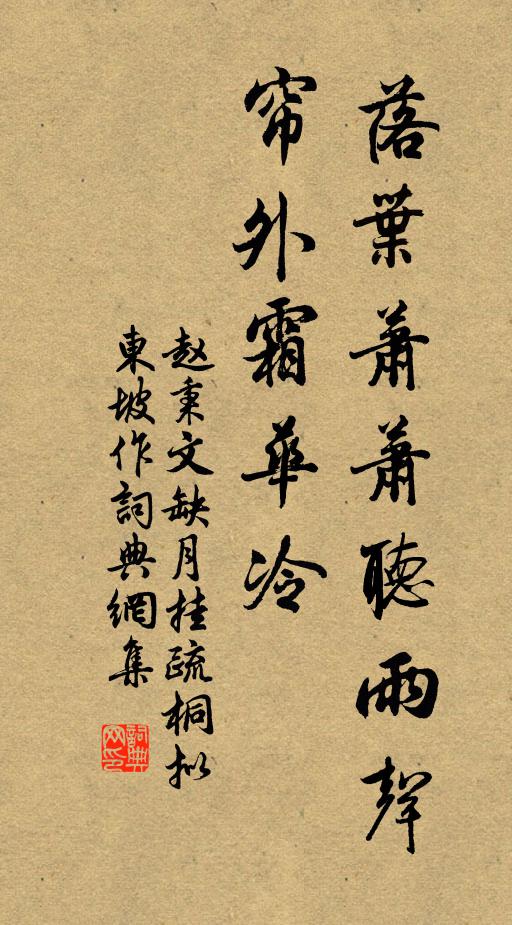 落葉蕭蕭聽雨聲
帘外霜華冷
赵秉文缺月挂疏桐拟
東坡作詞典網集
詞典网印